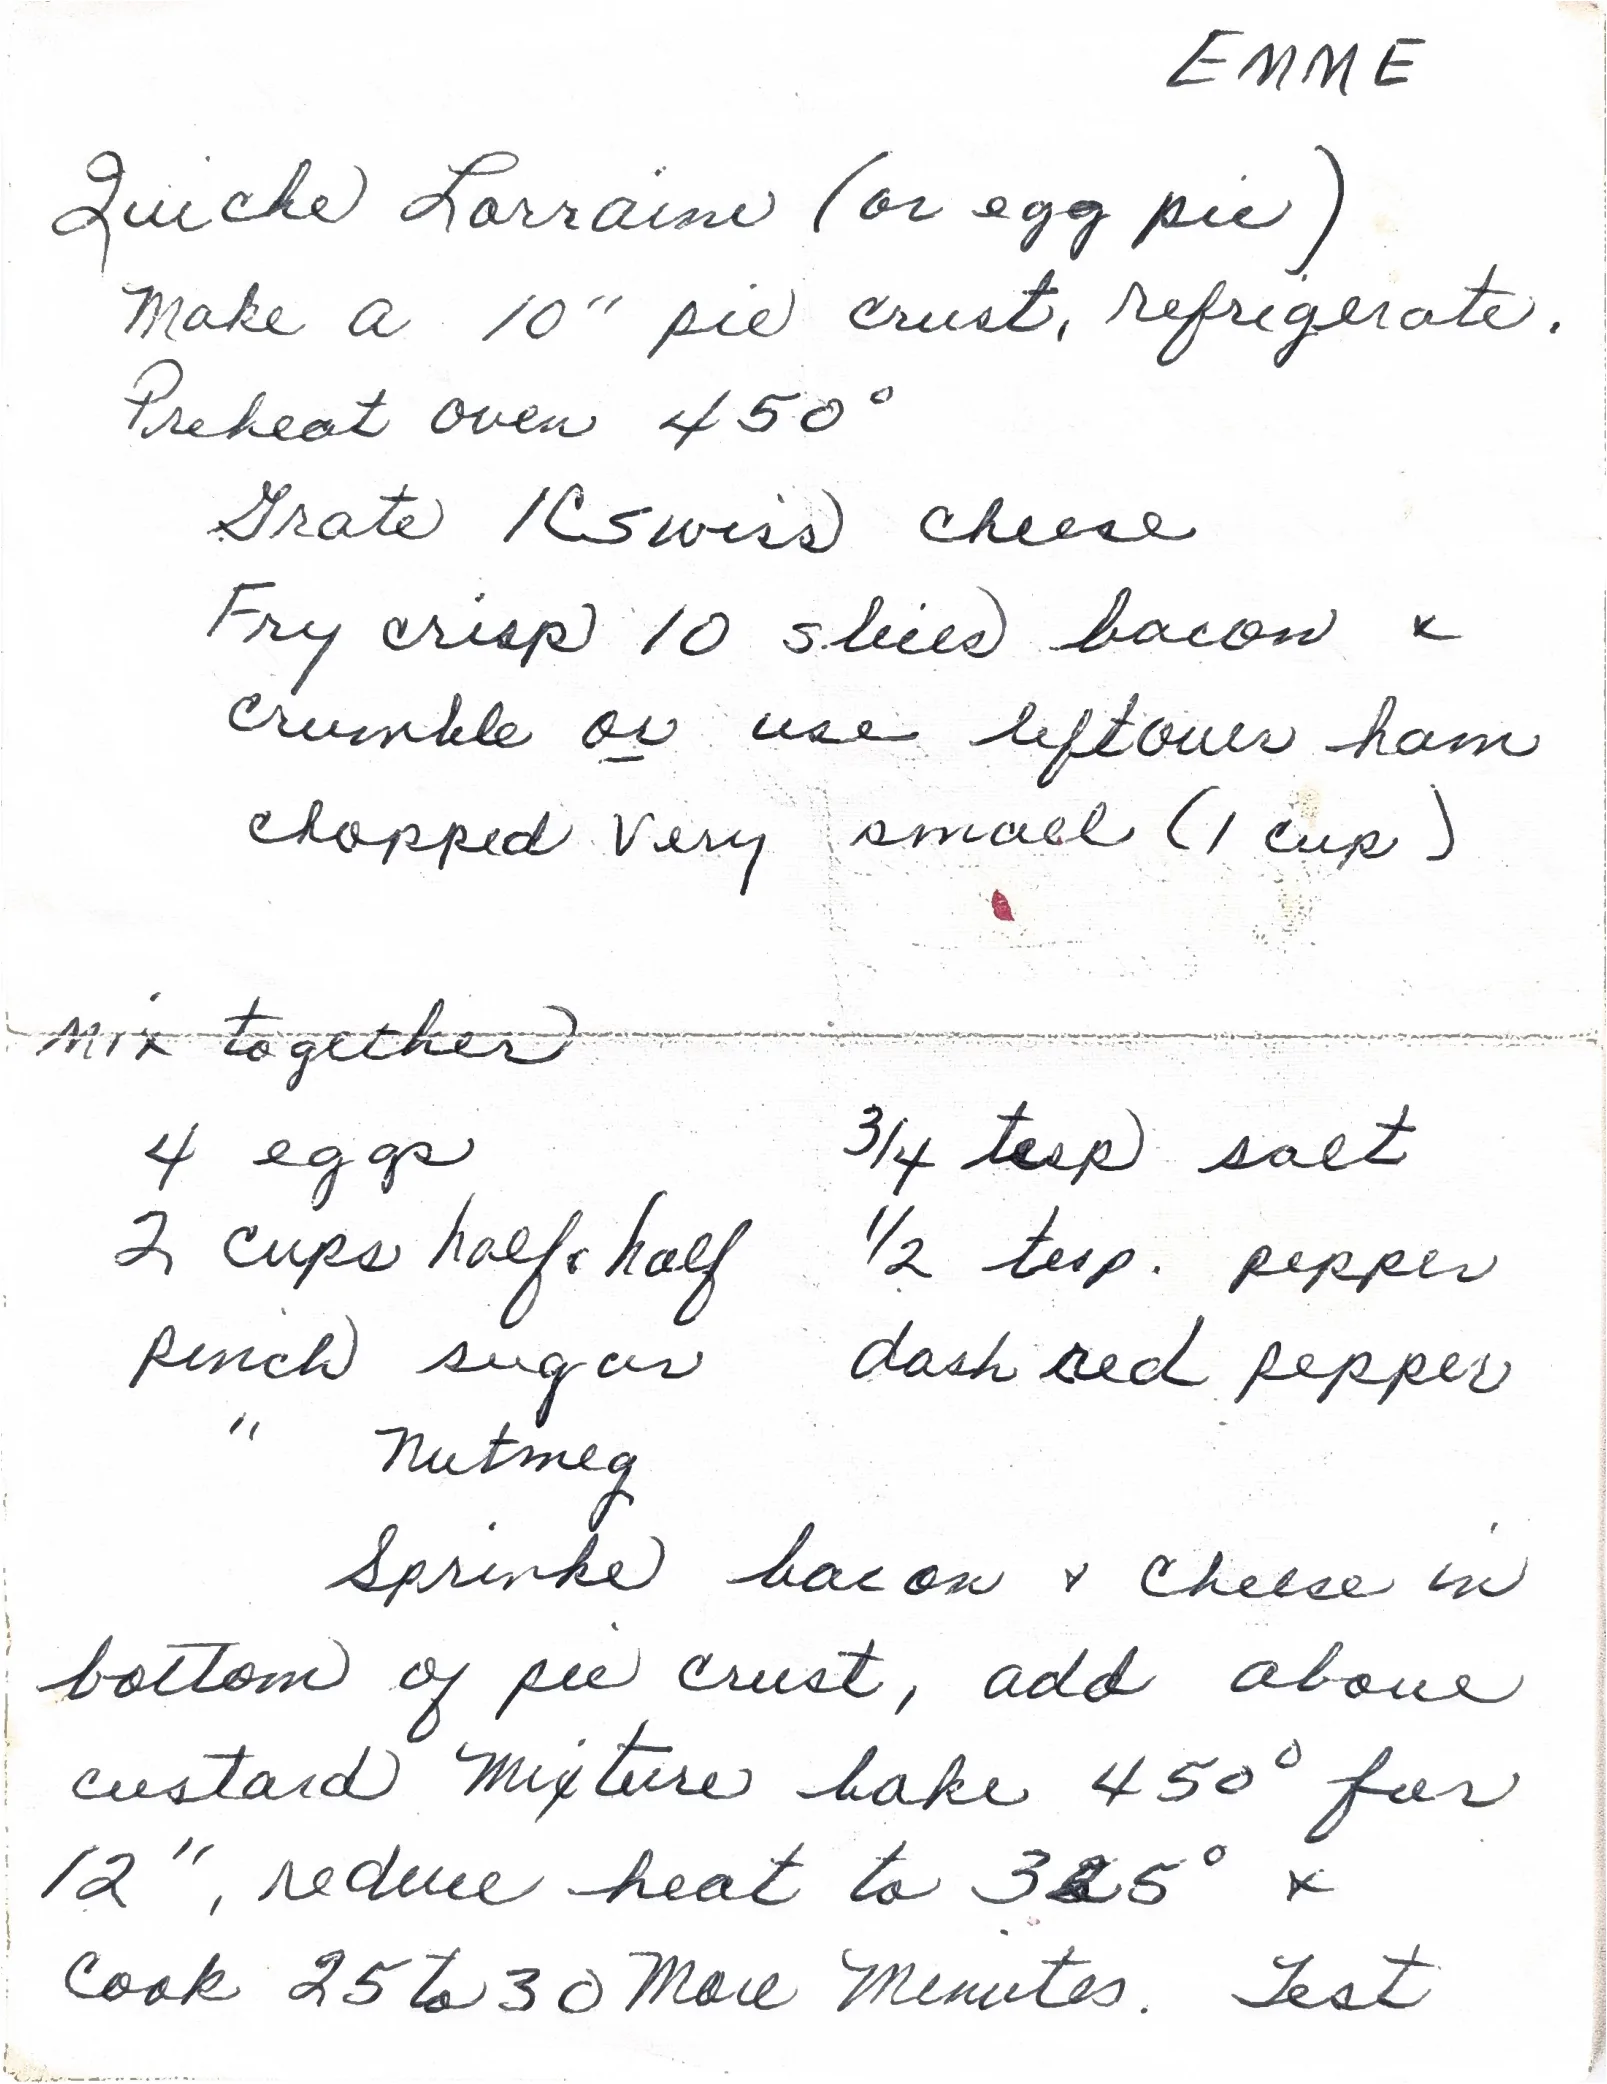 EMME
Quiche Lorraine (or egg pie)
Make a 10" pie crust, refrigerate.
Preheat oven 450°
Grate 1C Swiss cheese
Fry crisp 10 slices bacon &
crumble or use leftover ham
chopped very small (1 cup)
Mix together
4 eggs 3/4 tesp salt
2 cups half & half 1/2 tesp. pepper
pinch sugar dash red pepper
" Nutmeg
Sprinke bacon & cheese in
bottom of pie crust, add above
custard Mixture bake 450° for
12", reduce heat to 325° &
Cook 25 to 30 More Minutes. Test